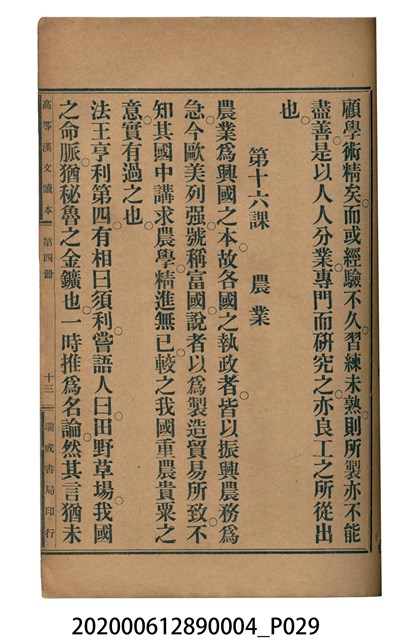 顧學術精矣。而或經驗不久。習練未熟。則所製亦不能
盡善。是以人人分業專門而研究之。亦良工之所從出
也。
第十六課　農業
農業爲興國之本。故各國之執政者。皆以振興農務爲
急。今歐美列强。號稱富國。說者以爲製造貿易所致。不
知其國中講求農學。精進無已。較之我國重農貴粟之
意。實有過之也。
法王亨利第四。有相曰須利。嘗語人曰。田野草場。我國
之命脈。猶秘魯之金鑛也。一時推爲名論。然其言猶未
高等漢文讀本　第四冊　十三　瑞成書局印行
202000612890004_P029